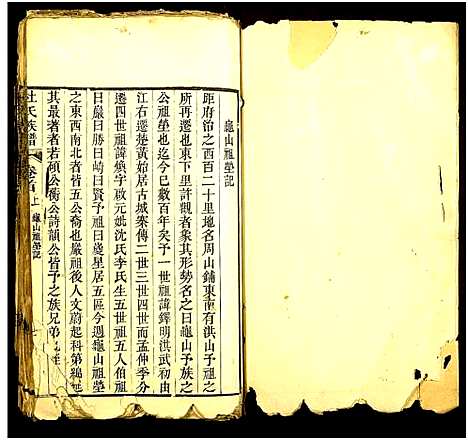 龜山祖塋記
距府治之西百二十里地名周山鋪東南有洪山予祖之
所再遷也東下里許觀者象其形勢名之曰龜山予族之
公祖塋也迄今已數百年矣予一世祖諱鐸明洪武初由
江右遷楚黃始居古城寨傳二世三世四世而孟仲季分
遷四世祖諱縝字啟元妣沈氏李氏生五世祖五人伯祖
曰嚴曰勝曰崎曰賢予祖曰嵏星居五區今週龜山祖塋
之東西南北者皆五公裔也嚴祖後人文蔚起科第綿延
其最著者若碩公衡公詩韻公皆予之族兄弟
杜氏族譜
卷首上
龜山祖塋記